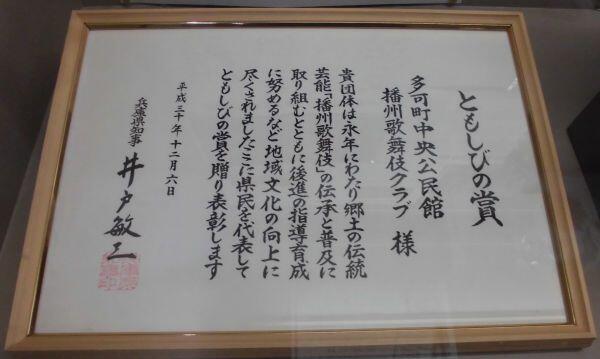 ともしびの賞
多可町中央公民館
播州歌舞伎クラブ 様
貴団体は永年にわたり郷土の伝統
芸能「播州歌舞伎」の伝承と普及に
取り組むとともに後進の指導育成
に努めるなど地域文化の向上に
尽くされましたここに県民を代表して
ともしびの賞を贈り表彰します
平成三十年十二月六日
兵庫県知事 井戸敏三